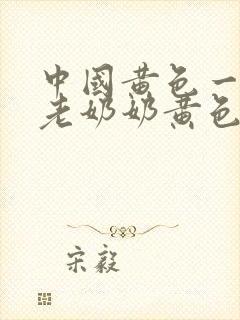 中國黄色一
老奶奶黄色
宋毅